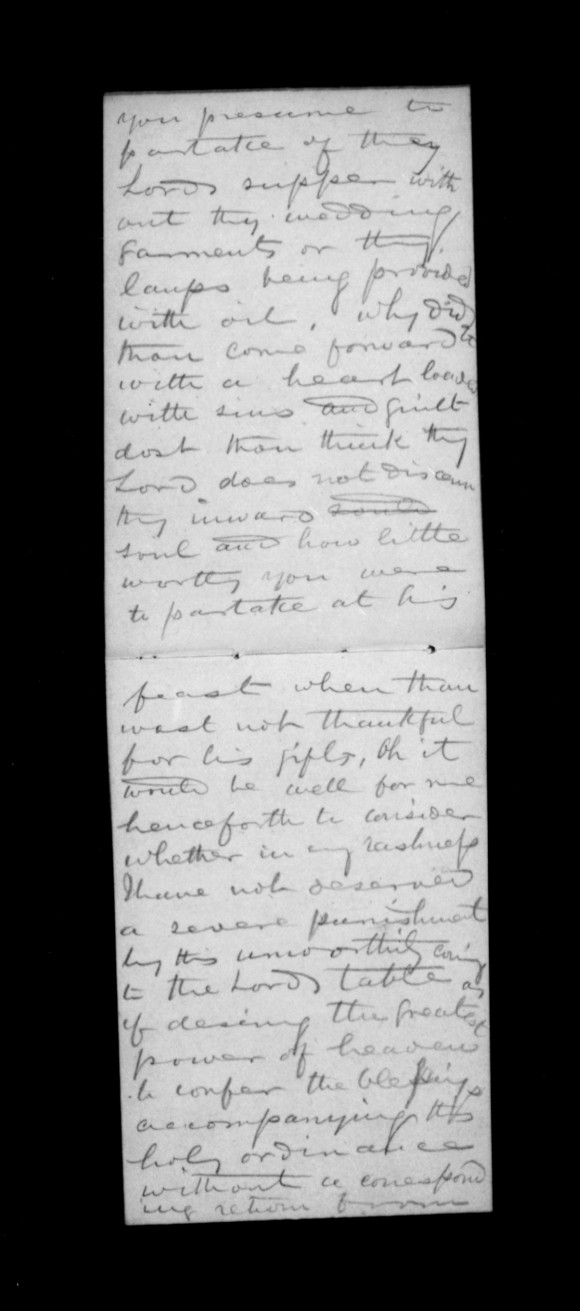 you presume to
partake of they
Lords supper with
out thy wedding
garments or thy
lamps being provided
with oil, why did
thou come forward to
with a heart loaded
with sins and guilt
dost thou think thy
Lord does not discern
thy inward souls
soul and how little
worthy you were
to partake at his
feast when thou
wast not thankful
for his gifts, Oh it
would be well for me
henceforth to consider
whether in my rashness
I have not deserved
a severe punishment
by this unworthily coming
to the Lords table as
if desiring the greatest
power of heaven
to confer the blessings
accompanying this
holy ordinance
without a correspond
ing return from